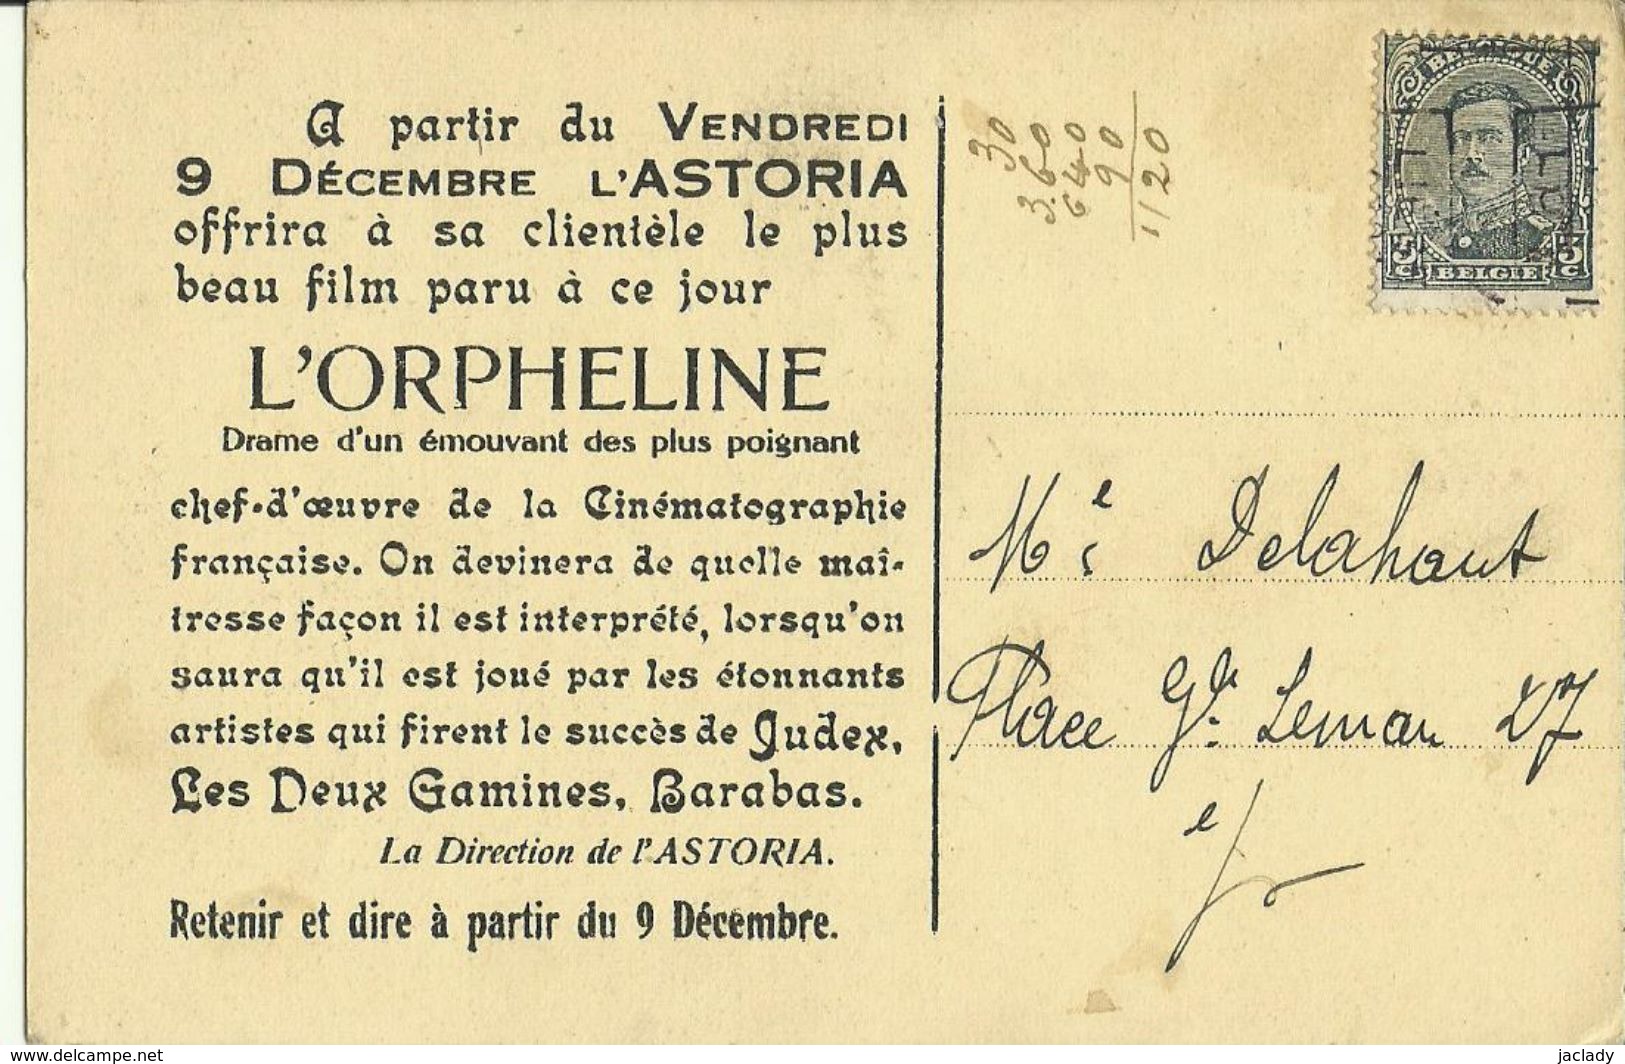 A partir du VENDREDI
9 DÉCEMBRE L'ASTORIA
offrira à sa clientèle le plus
beau film paru à ce jour
L'ORPHELINE
Drame d'un émouvant des plus poignant
chef-d'œuvre de la Cinématographie
française. On devinera de quelle maî-
tresse façon il est interprété, lorsqu'on
saura qu'il est joué par les étonnants
artistes qui firent le succès de Judex,
Les Deux Gamines, Barabas.
La Direction de l'ASTORIA.
Retenir et dire à partir du 9 Décembre.
30
3.60
640
90
1120
BELGIQUE
BELGIE
Me Delahaut
Place Gl Leman 27
e/
delcampe.net
jaclady